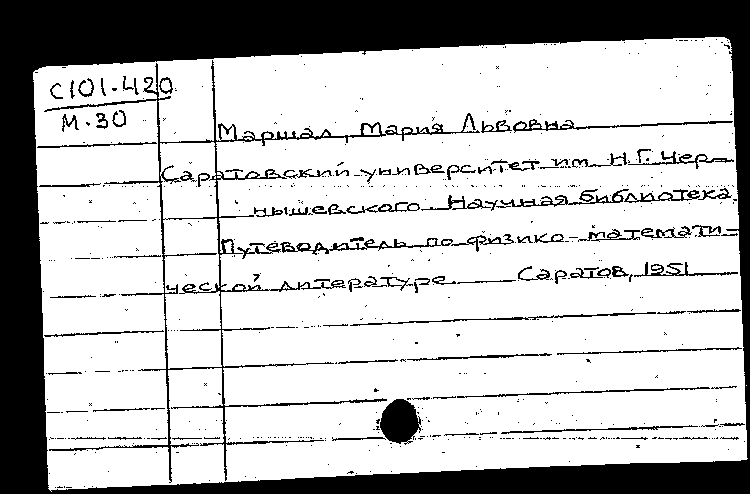 С101.420
М.30
Маршал, Мария Львовна
Саратовский университет им. Н.Г. Чер-
нышевского. Научная библиотека.
Путеводитель по физико-математи-
ческой литературе. Саратов, 1951